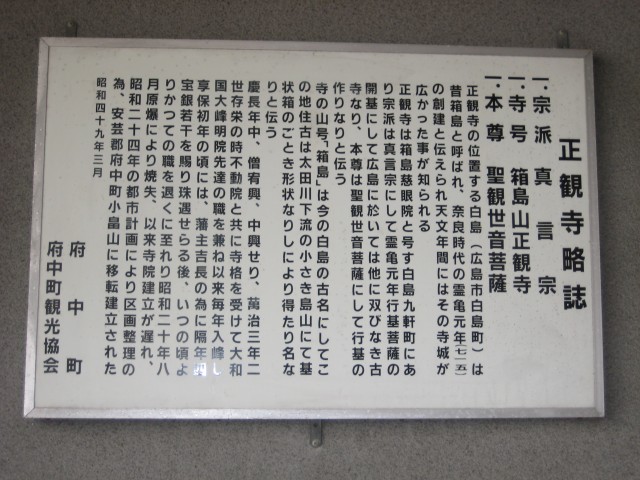 正観寺略誌
一.宗派 真言宗
一.寺号 箱島山正観寺
一.本尊 聖観世音菩薩
正観寺の位置する白島(広島市白島町)は
昔箱島と呼ばれ、奈良時代の霊亀元年(七一五)
の創建と伝えられ天文年間にはその寺城が
広かった事が知られる
正観寺は箱島慈眼院と号す白島九軒町にあ
り宗派は真言宗にして霊亀元年行基菩薩の
開基にして広島に於いては他に双びなき古
寺なり、本尊は聖観世音菩薩にして行基の
作りなりと伝う
寺の山号「箱島」は今の白島の古名にしてこ
の地往古は太田川下流の小さき島山にて基
状箱のごとき形状なりしにより得たり名な
りと伝う
慶長年中、僧宥興、中興せり、萬治三年二
世存栄の時不動院と共に寺格を受けて大和
国大峰明院先達の職を兼ね以来毎年入峰し
享保初年の頃には、藩主吉長の為に隔年四
宝銀若干を賜り珠遇せらる後、いつの頃よ
りかつての職を退くに至れり昭和二十年八
月原爆により焼失、以来寺院建立が遅れ、
昭和二十四年の都市計画により区画整理の
為、安芸郡府中町小畠山に移転建立された
昭和四十九年三月
府中町
府中町観光協会